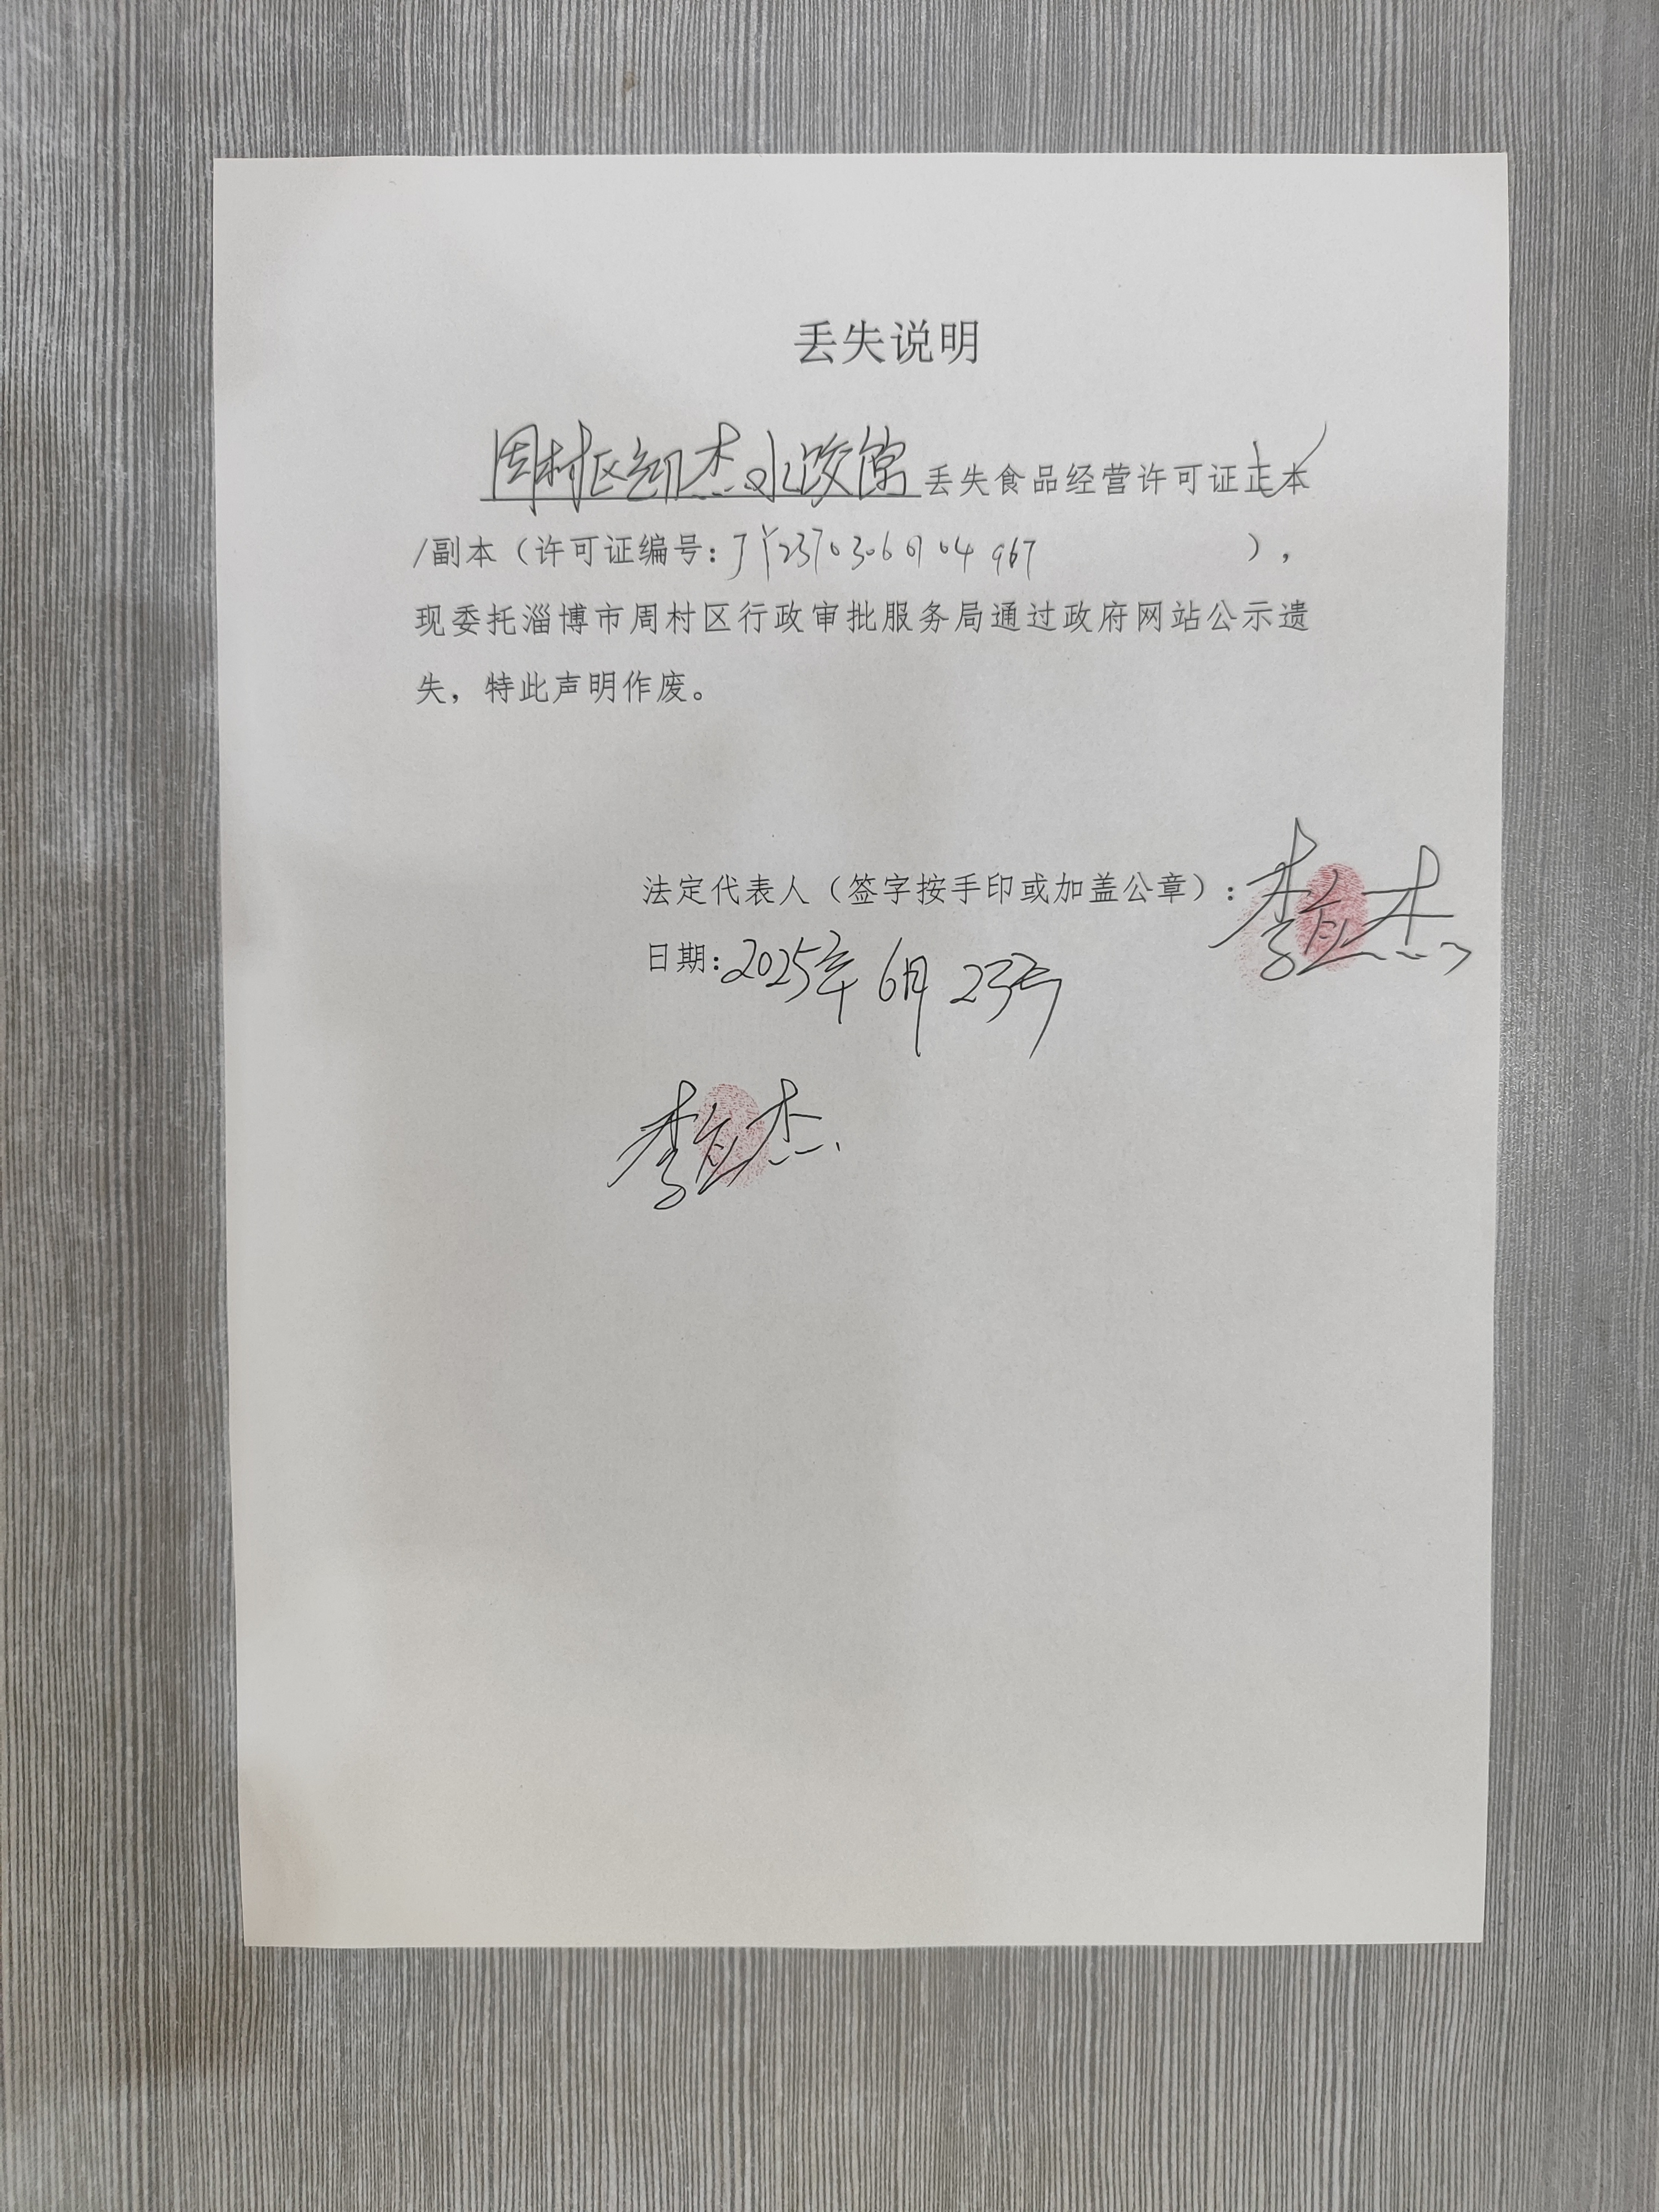 丢失说明
周村区凯杰水饺馆丢失食品经营许可证正本
/副本（许可证编号：JY23703060104967），
现委托淄博市周村区行政审批服务局通过政府网站公示遗
失，特此声明作废。
法定代表人（签字按手印或加盖公章）：李杰
日期：2025年6月23号
李杰